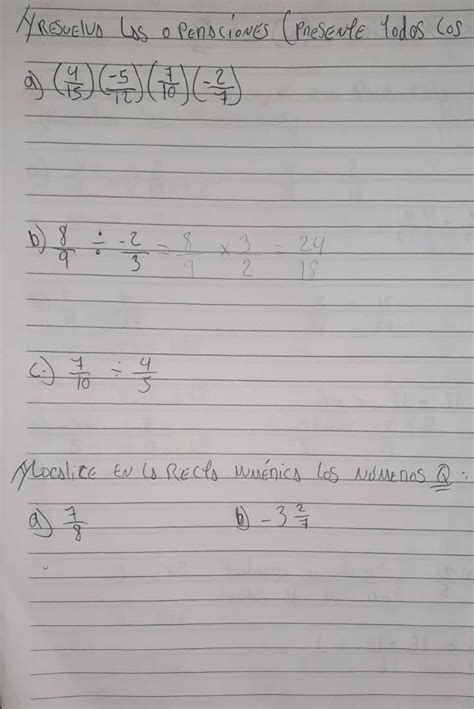 1) RESUELVA LAS OPERACIONES (PRESENTE todos los
a) (4/15) (-5/12) (7/10) (-2/7)
b) 8/9 ÷ -2/3 = 8/9 x 3/2 = 24/18
c.) 7/10 ÷ 4/5
1) LOCALICE EN LA RECTA NUMÉRICA LOS NÚMEROS Q :
a) 7/8 b) -3 2/7